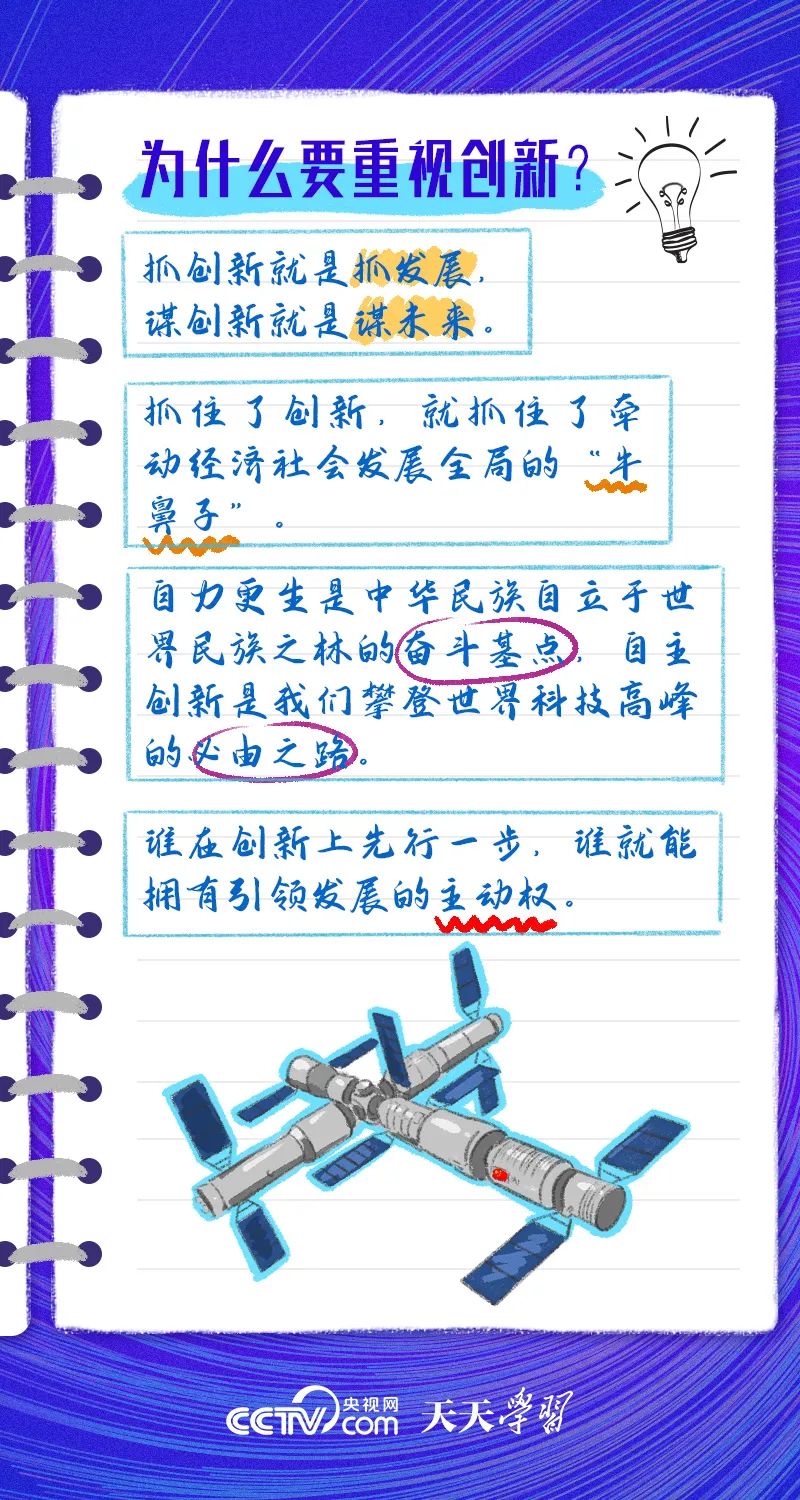 为什么要重视创新？
抓创新就是抓发展，
谋创新就是谋未来。
抓住了创新，就抓住了牵
动经济社会发展全局的“牛
鼻子”。
自力更生是中华民族自立于世
界民族之林的奋斗基点，自主
创新是我们攀登世界科技高峰
的必由之路。
谁在创新上先行一步，谁就能
拥有引领发展的主动权。
CCTV.com 央视网 天天学習